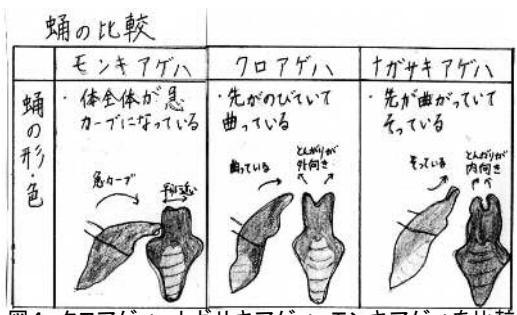 蛹の比較
モンキアゲハ
クロアゲハ
ナガサキアゲハ
蛹の形・色
・体全体が急
カーブになっている
急カーブ
・先がのびていて
曲っている
曲っている
とんがりが
外向き
・先が曲がっていて
そっている
そっている
とんがりが
内向き